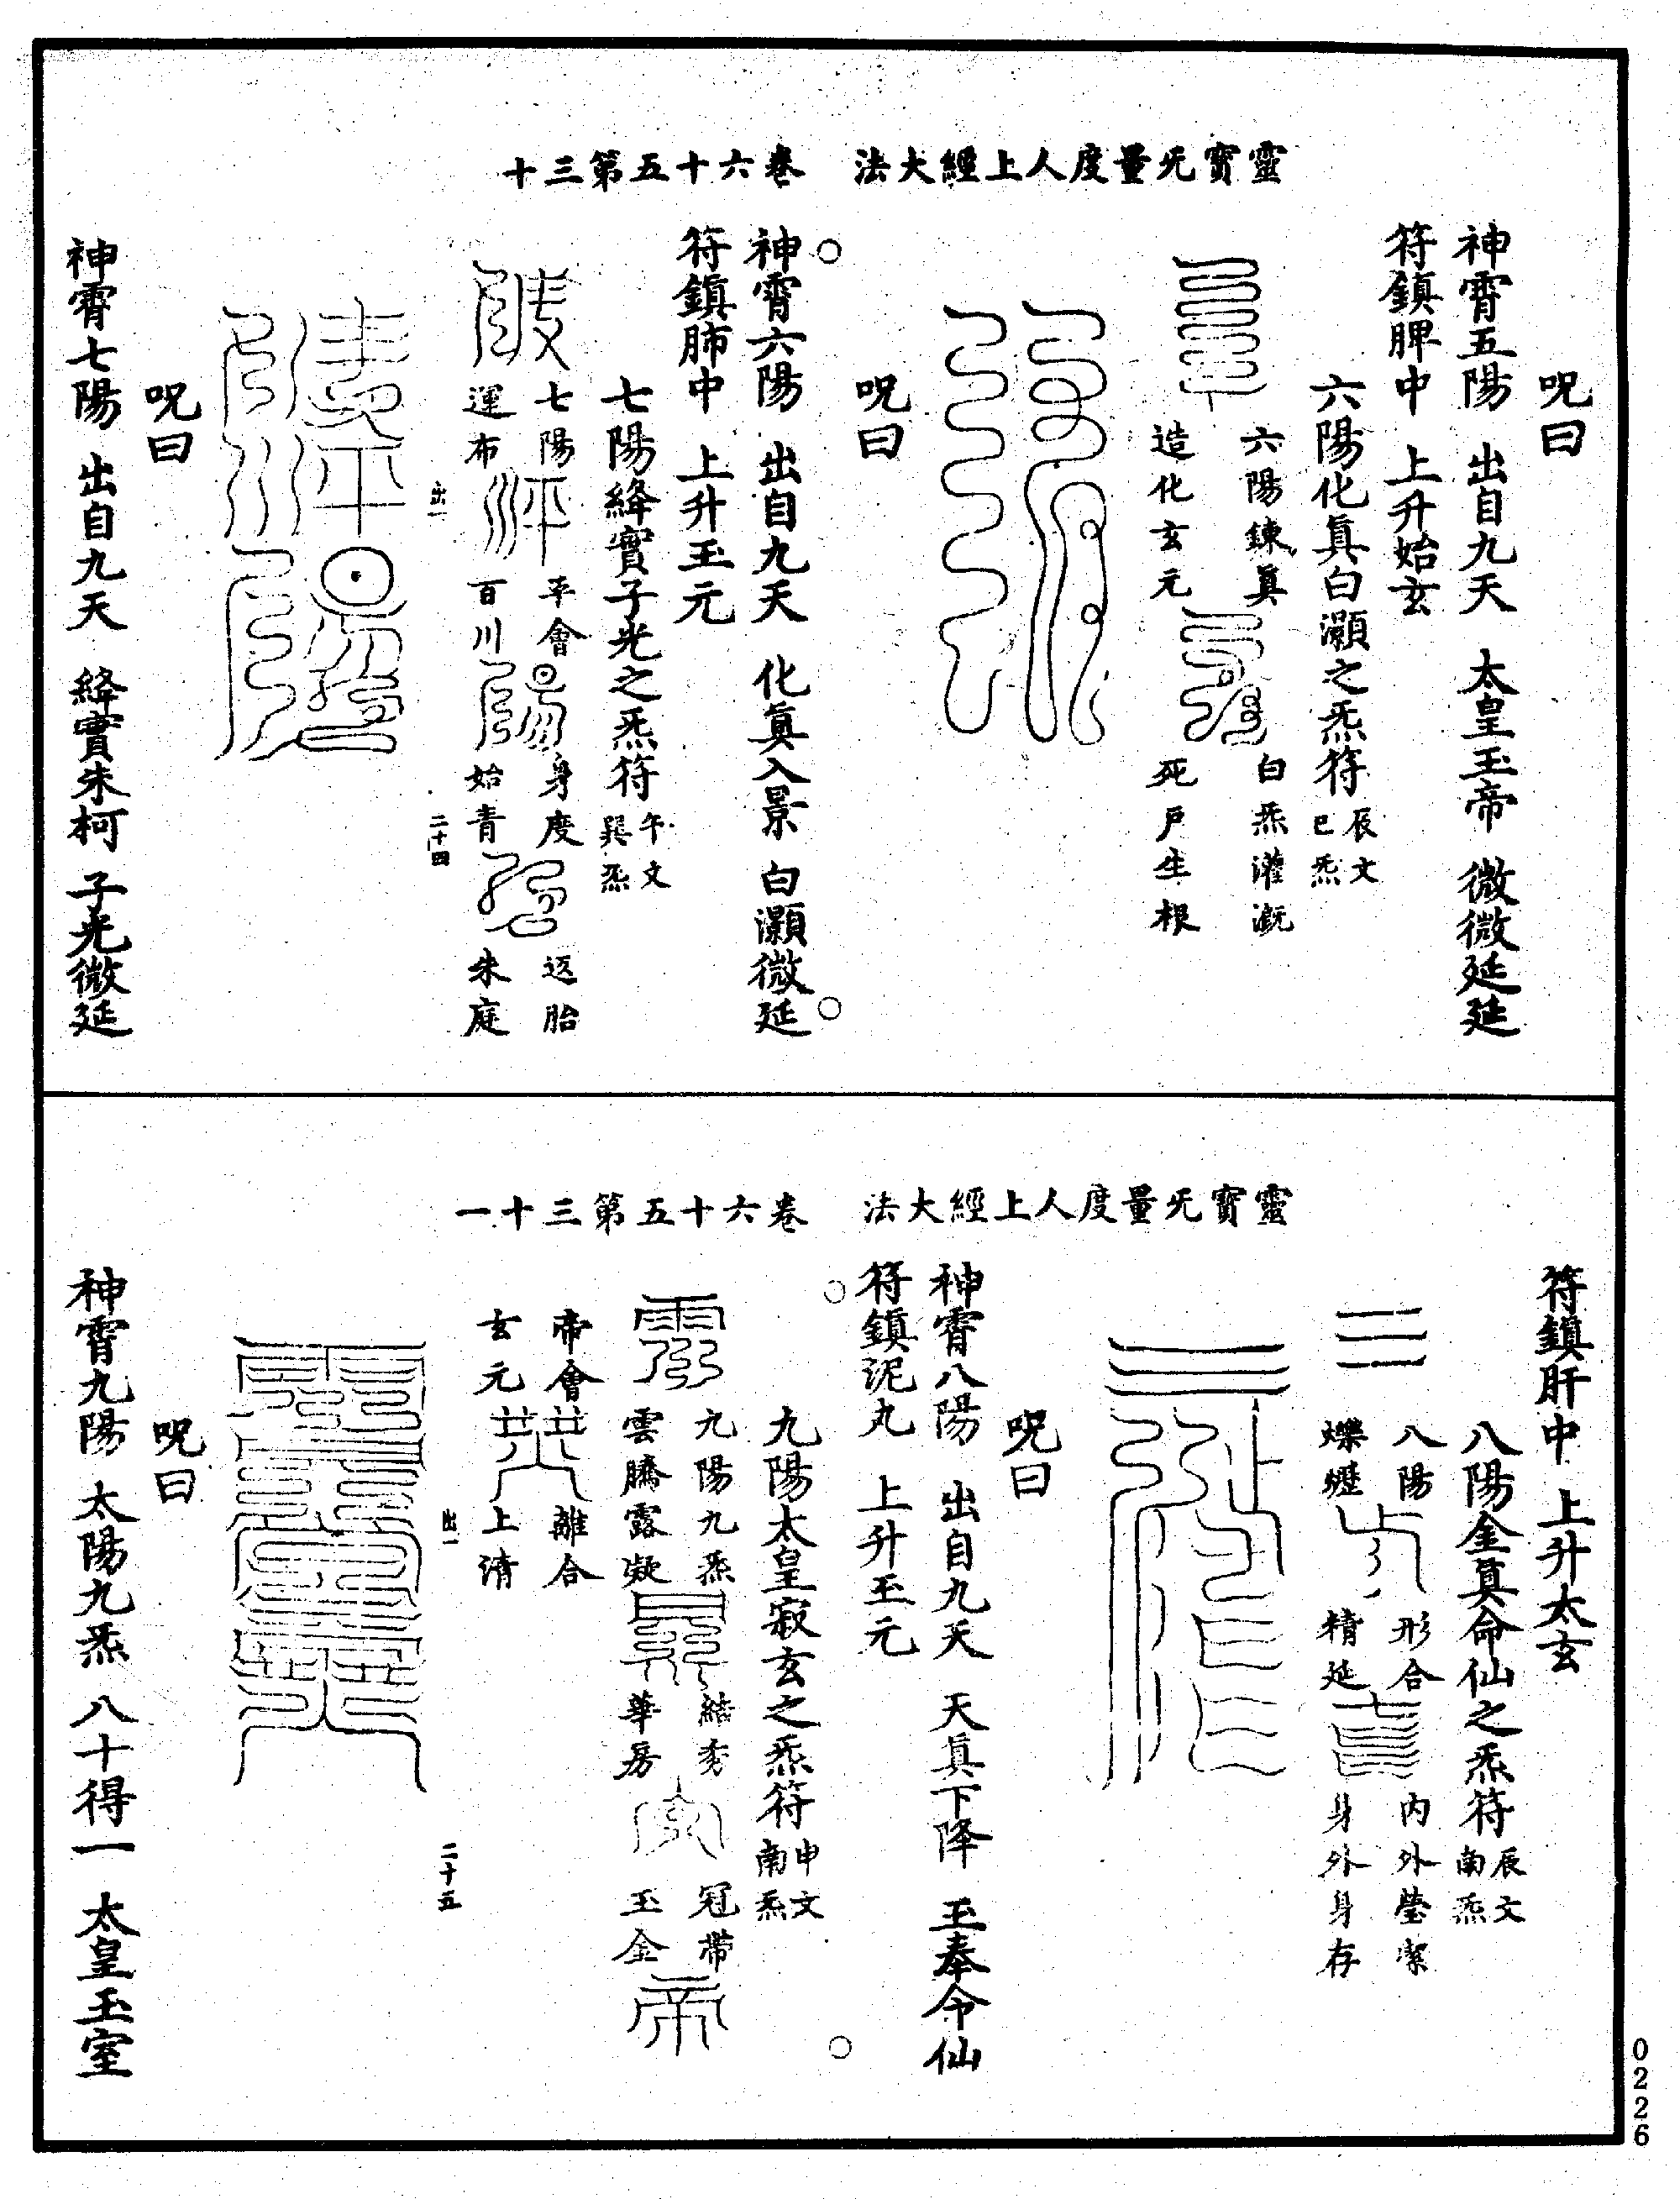 靈寶旡量度人上經大法　卷六十五第三十
呪曰
神霄五陽　出自九天　太皇玉帝　微微延延
符鎮脾中　上升始玄
六陽化眞白灝之炁符 辰文 巳炁
六陽鍊眞 造化玄元
白炁灌溉 死戶生根
呪曰
神霄六陽　出自九天　化眞入景　白灝微延
符鎮肺中　上升玉元
七陽絳實子光之炁符 午文 巽炁
七陽 運布
平會 百川
身度 始青
返胎 朱庭
出一
二十四
呪曰
神霄七陽　出自九天　絳實朱柯　子光微延
靈寶旡量度人上經大法　卷六十五第三十一
符鎮肝中　上升太玄
八陽金眞命仙之炁符 辰文 南炁
八陽 爍
形合 精延
內外瑩潔 身外身存
呪曰
神霄八陽　出自九天　天眞下降　玉奉令仙
符鎮泥丸　上升玉元
九陽太皇寂玄之炁符 申文 南炁
九陽九炁 雲騰露凝
結秀 華房
冠帶 玉金
帝會 玄元
離合 上清
出一
二十五
呪曰
神霄九陽　太陽九炁　八十得一　太皇玉室
0226